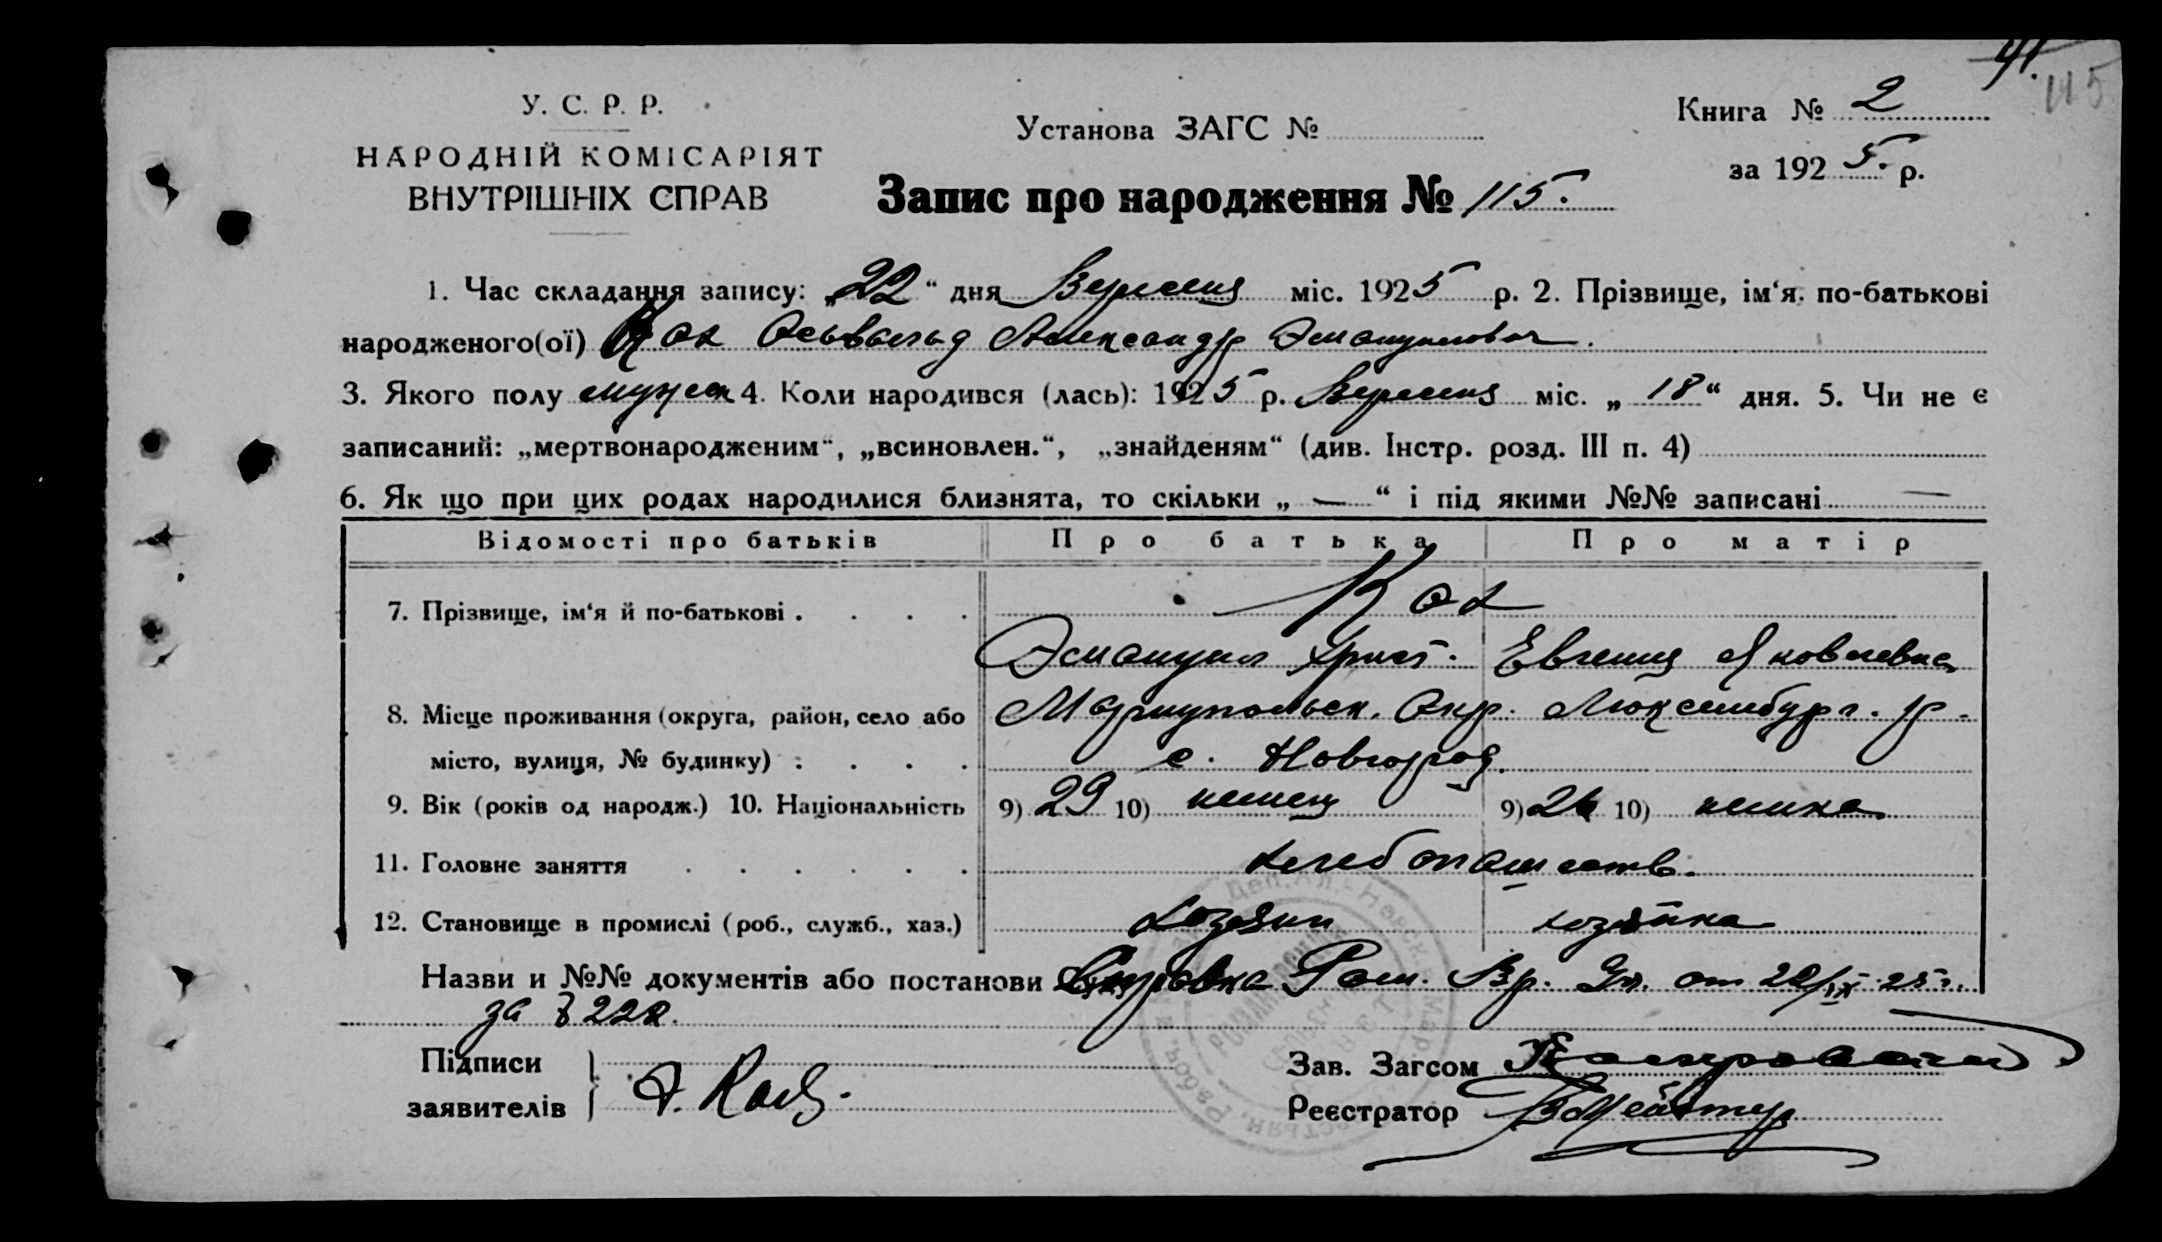 41.
115
У. С. Р. Р.
НАРОДНІЙ КОМІСАРІЯТ
ВНУТРІШНІХ СПРАВ
Установа ЗАГС №
Книга № 2
за 1925 р.
Запис про народження № 115.
1. Час складання запису: „22“ дня Вересня міс. 1925 р. 2. Прізвище, ім‘я, по-батькові
народженого(ої) Кох Освальд Александр Эмануилович.
3. Якого полу мужск 4. Коли народився (лась): 1925 р. Вересня міс. „18“ дня. 5. Чи не є
записаний: „мертвонародженим“, „всиновлен.“, „знайденям“ (див. Інстр. розд. III п. 4)
6. Як що при цих родах народилися близнята, то скільки „—“ і під якими №№ записані —
Відомості про батьків Про батька Про матір
7. Прізвище, ім‘я й по-батькові . . . . Кох
Эмануил Христ. Евгения Яковлевна
8. Місце проживання (округа, район, село або Мариупольск. Окр. Люксембург. р.
місто, вулиця, № будинку) . . . . с. Новгород.
9. Вік (років од народж.) 10. Національність 9) 29 10) немец 9) 24 10) немка
11. Головне заняття . . . . . . хлебопашеств.
12. Становище в промислі (роб., служб., хаз.) хозяин хозяйка
Назви и №№ документів або постанови Справка Вр. от 22/IX 25 г.
за № 222.
Підписи
заявителів
Зав. Загсом
Реєстратор